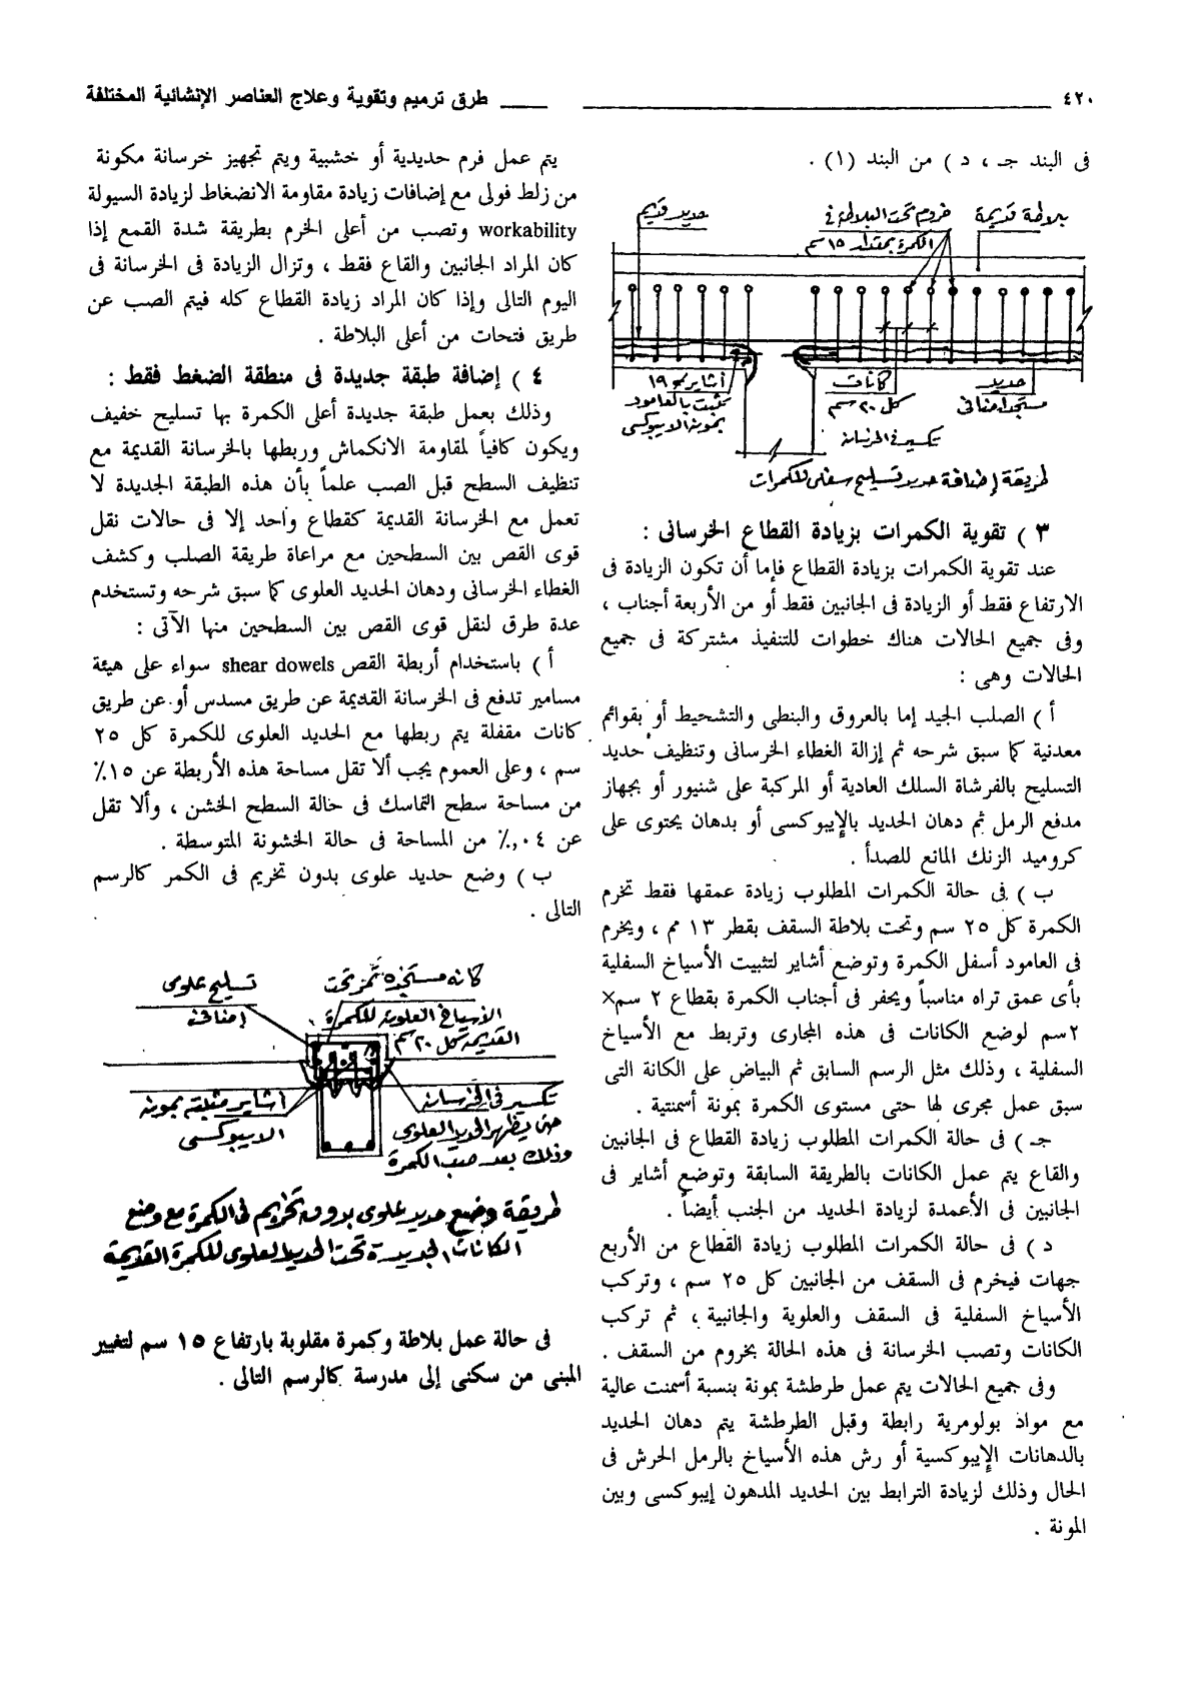 ٤٢٠
طرق ترميم وتقوية وعلاج العناصر الإنشائية المختلفة
فى البند جـ ، د ) من البند (١) .
بلاطة قديمة
خروم تحت البلاطة فى
الكمرة بمقدار ١٥ سم
حديد قديم
حديد
مستجد إضافى
كانات
كل ٢٠ سم
تكسير فى الخرسانة
أشاير ١٩
تثبت بالعامود
بمونة الايبوكسى
طريقة إضافة حديد تسليح سفلى للكمرات
٣ ) تقوية الكمرات بزيادة القطاع الخرسانى :
عند تقوية الكمرات بزيادة القطاع فإما أن تكون الزيادة فى
الارتفاع فقط أو الزيادة فى الجانبين فقط أو من الأربعة أجناب ،
وفى جميع الحالات هناك خطوات للتنفيذ مشتركة فى جميع
الحالات وهى :
أ ) الصلب الجيد إما بالعروق والبنطى والتشحيط أو بقوائم
معدنية كما سبق شرحه ثم إزالة الغطاء الخرسانى وتنظيف حديد
التسليح بالفرشاة السلك العادية أو المركبة على شنيور أو بجهاز
مدفع الرمل ثم دهان الحديد بالإيبوكسى أو بدهان يحتوى على
كروميد الزنك المانع للصدأ .
ب ) فى حالة الكمرات المطلوب زيادة عمقها فقط تخرم
الكمرة كل ٢٥ سم وتحت بلاطة السقف بقطر ١٣ مم ، ويخرم
فى العامود أسفل الكمرة وتوضع أشاير لتثبيت الأسياخ السفلية
بأى عمق تراه مناسباً ويحفر فى أجناب الكمرة بقطاع ٢ سم×
٢سم لوضع الكانات فى هذه المجارى وتربط مع الأسياخ
السفلية ، وذلك مثل الرسم السابق ثم البياض على الكانة التى
سبق عمل مجرى لها حتى مستوى الكمرة بمونة أسمنتية .
جـ ) فى حالة الكمرات المطلوب زيادة القطاع فى الجانبين
والقاع يتم عمل الكانات بالطريقة السابقة وتوضع أشاير فى
الجانبين فى الأعمدة لزيادة الحديد من الجنب أيضاً .
د ) فى حالة الكمرات المطلوب زيادة القطاع من الأربع
جهات فيخرم فى السقف من الجانبين كل ٢٥ سم ، وتركب
الأسياخ السفلية فى السقف والعلوية والجانبية ، ثم تركب
الكانات وتصب الخرسانة فى هذه الحالة بخروم من السقف .
وفى جميع الحالات يتم عمل طرطشة بمونة بنسبة أسمنت عالية
مع مواد بولومرية رابطة وقبل الطرطشة يتم دهان الحديد
بالدهانات الإيبوكسية أو رش هذه الأسياخ بالرمل الحرش فى
الحال وذلك لزيادة الترابط بين الحديد المدهون إيبوكسى وبين
المونة .
يتم عمل فرم حديدية أو خشبية ويتم تجهيز خرسانة مكونة
من زلط فولى مع إضافات زيادة مقاومة الانضغاط لزيادة السيولة
workability وتصب من أعلى الخرم بطريقة شدة القمع إذا
كان المراد الجانبين والقاع فقط ، وتزال الزيادة فى الخرسانة فى
اليوم التالى وإذا كان المراد زيادة القطاع كله فيتم الصب عن
طريق فتحات من أعلى البلاطة .
٤ ) إضافة طبقة جديدة فى منطقة الضغط فقط :
وذلك بعمل طبقة جديدة أعلى الكمرة بها تسليح خفيف
ويكون كافياً لمقاومة الانكماش وربطها بالخرسانة القديمة مع
تنظيف السطح قبل الصب علماً بأن هذه الطبقة الجديدة لا
تعمل مع الخرسانة القديمة كقطاع واحد إلا فى حالات نقل
قوى القص بين السطحين مع مراعاة طريقة الصلب وكشف
الغطاء الخرسانى ودهان الحديد العلوى كما سبق شرحه وتستخدم
عدة طرق لنقل قوى القص بين السطحين منها الآتى :
أ ) باستخدام أربطة القص shear dowels سواء على هيئة
مسامير تدفع فى الخرسانة القديمة عن طريق مسدس أو عن طريق
كانات مقفلة يتم ربطها مع الحديد العلوى للكمرة كل ٢٥
سم ، وعلى العموم يجب ألا تقل مساحة هذه الأربطة عن ١٥٪
من مساحة سطح التماسك فى حالة السطح الخشن ، وألا تقل
عن ٠٤,٪ من المساحة فى حالة الخشونة المتوسطة .
ب ) وضع حديد علوى بدون تخريم فى الكمر كالرسم
التالى .
كانه مستجده تمر تحت
الأسياخ العلوية للكمرة
القديمة كل ٢٠ سم
تسليح علوى
إضافى
أشاير مثبتة بمونة
الايبوكسى
تكسير فى الخرسانة
حتى يظهر الحديد العلوى
وذلك بعد صب الكمرة
طريقة وضع حديد علوى بدون تخريم فى الكمرة مع وضع
الكانات الجديدة تحت الحديد العلوى للكمرة القديمة
فى حالة عمل بلاطة وكمرة مقلوبة بارتفاع ١٥ سم لتغيير
المبنى من سكنى إلى مدرسة كالرسم التالى .